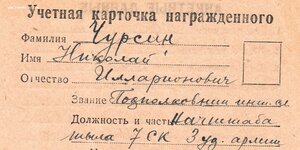 Учетная карточка награжденного
Фамилия Чурсин
Имя Николай
Отчество Илларионович
Звание Подполковник инт. сл.
Должность и часть Начштаба
тыла 7 СК 3 уд. армии